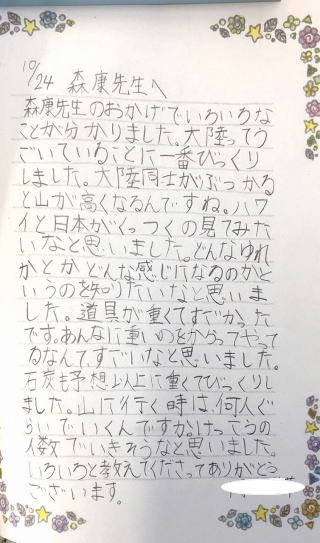 10/24 森康先生へ
森康先生のおかげでいろいろな
ことが分かりました。大陸ってう
ごいていることに一番びっくり
しました。大陸同士がぶつかる
と山が高くなるんですね。ハワ
イと日本がくっつくの見てみた
いなと思いました。どんなゆれ
かとかどんな感じになるのかと
いうのを知りたいなと思いま
した。道具が重くてすごかった
です。あんなに重いのをからってやって
るなんて、すごいなと思いました。
石炭も予想以上に重くてびっくりし
ました。山に行く時は、何人ぐ
らいでいくんですかけっこうの
人数でいきそうなと思いました。
いろいろと教えてくださってありがとう
ございます。